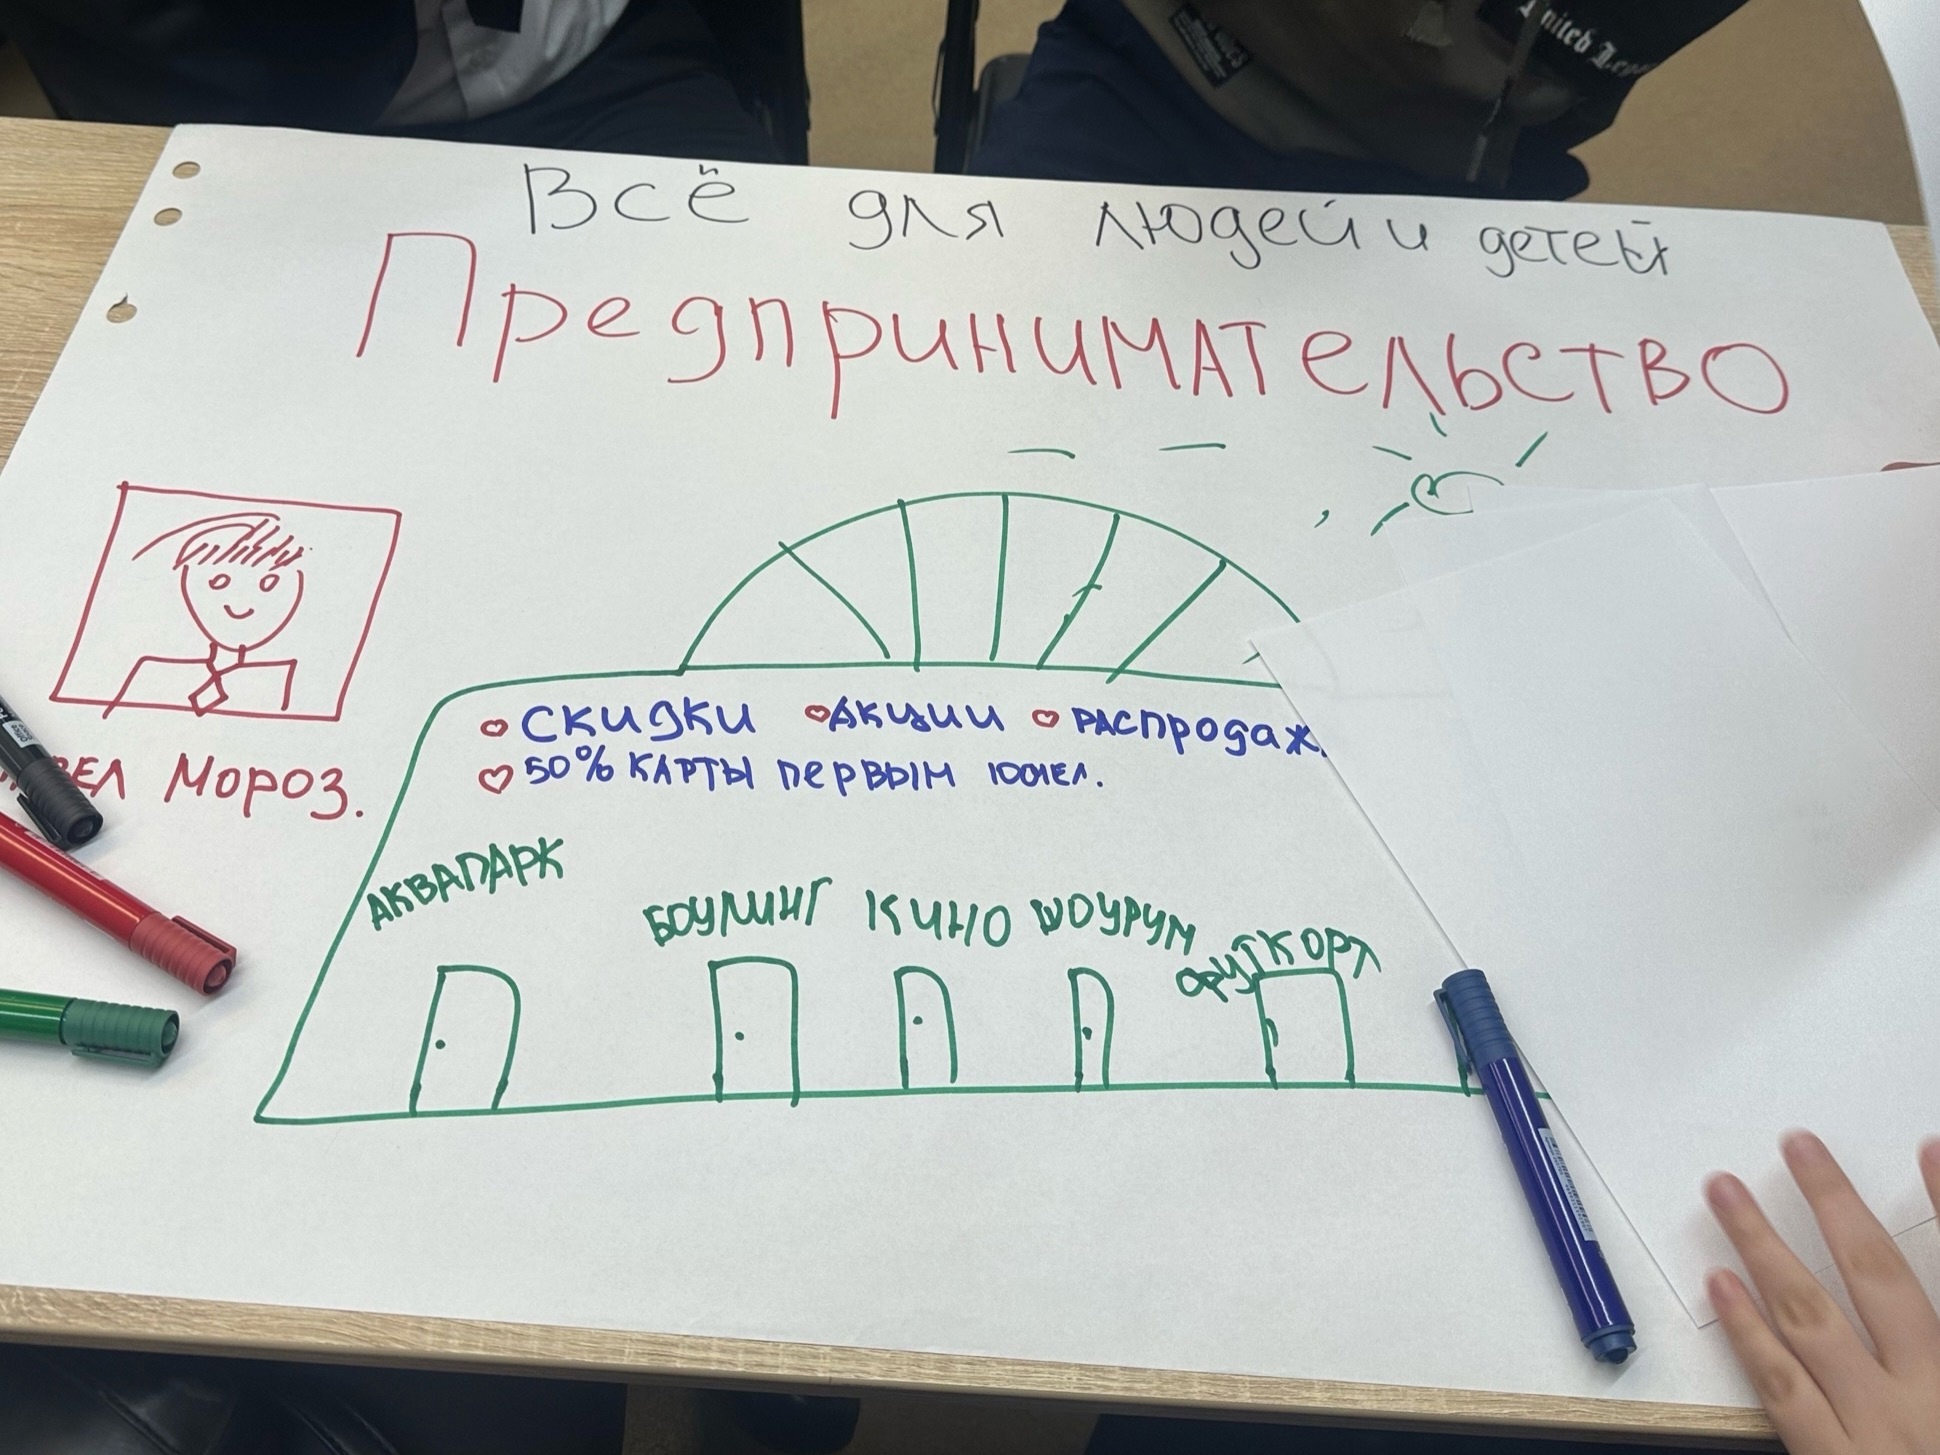 United
Всё для людей и детей
Предпринимательство
Мороз.
Скидки Акции Распродаж
50% карты первым 100чел.
Аквапарк
Боулинг Кино Шоурум
Футкорт